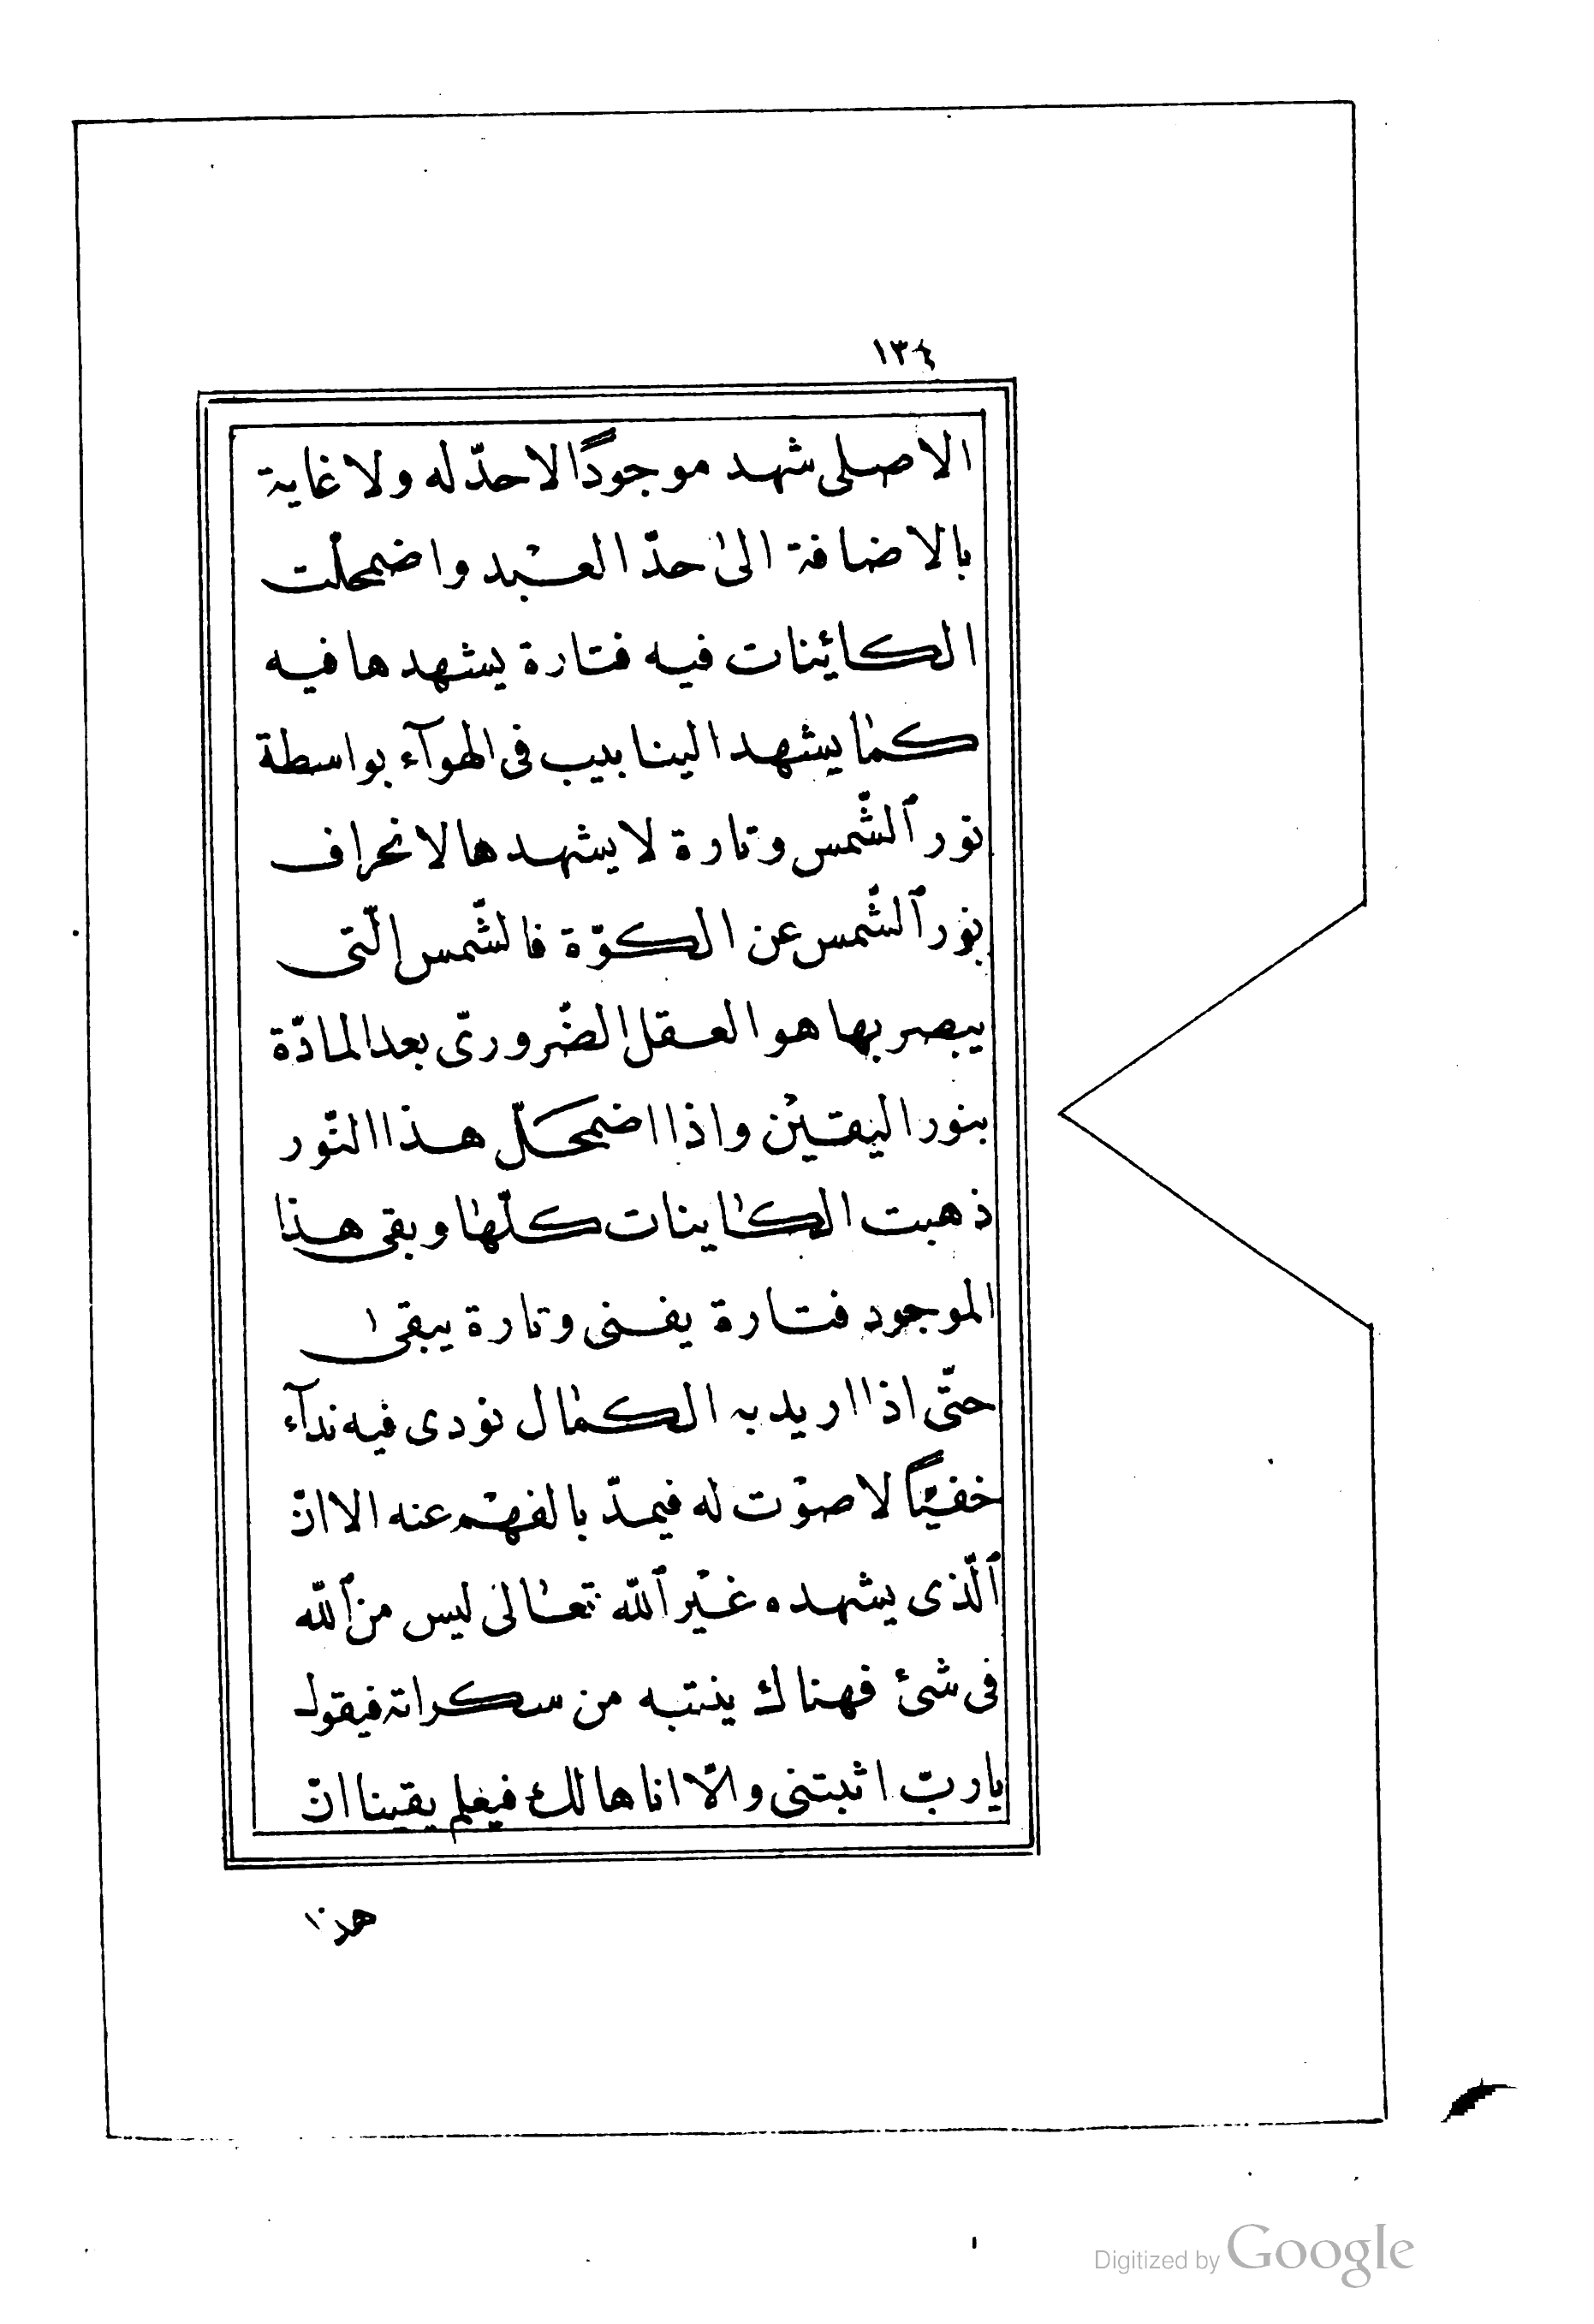 ١٣٤
الاصلى شهد موجودًا لا حدّ له ولا غاية
بالاضافة الىٰ حدّ العبْد واضمحلّت
الكائنات فيه فتارة يشهدها فيه
كمٰا يشهد الينابيب فى الهوآء بواسطة
نور ٱلشّمس وتارة لا يشهدها لانحراف
نور ٱلشّمس عن الكوّة فالشّمس الّتى
يبصر بها هو العقل الضّرورىّ بعد المادّة
بنور اليقيْن واذا اضمحلّ هذا النّور
ذهبت الكٰاينات كلّهٰا وبقى هذا
الموجود فتارة يفنى وتارة يبقىٰ
حتّى اذا اريد به الكمٰال نودى فيه ندآء
خفيًّا لا صوْت له فيمدّ بالفهْم عنه الا انّ
ٱلّذى يشهده غيْر ٱللّه تعٰالىٰ ليس من ٱللّه
فى شئ فهناك ينتبه من سكراته فيقول
يا ربّ اثبتنى والّا انا هالك فيعلم يقينا انّ
هذا
Digitized by Google